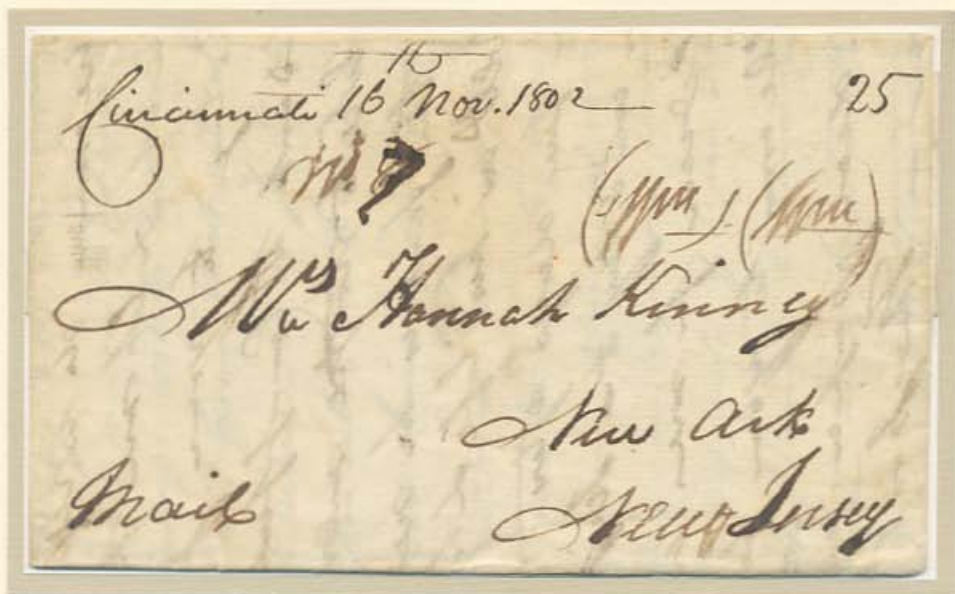 16
Cincinnati 16 Nov. 1802 25
Mrs Hannah Kinney
New Ark
Mail New Jersey